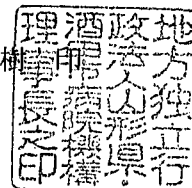 地方独立行
政法人山形県
酒田病院機構
理事長之印
樹 印